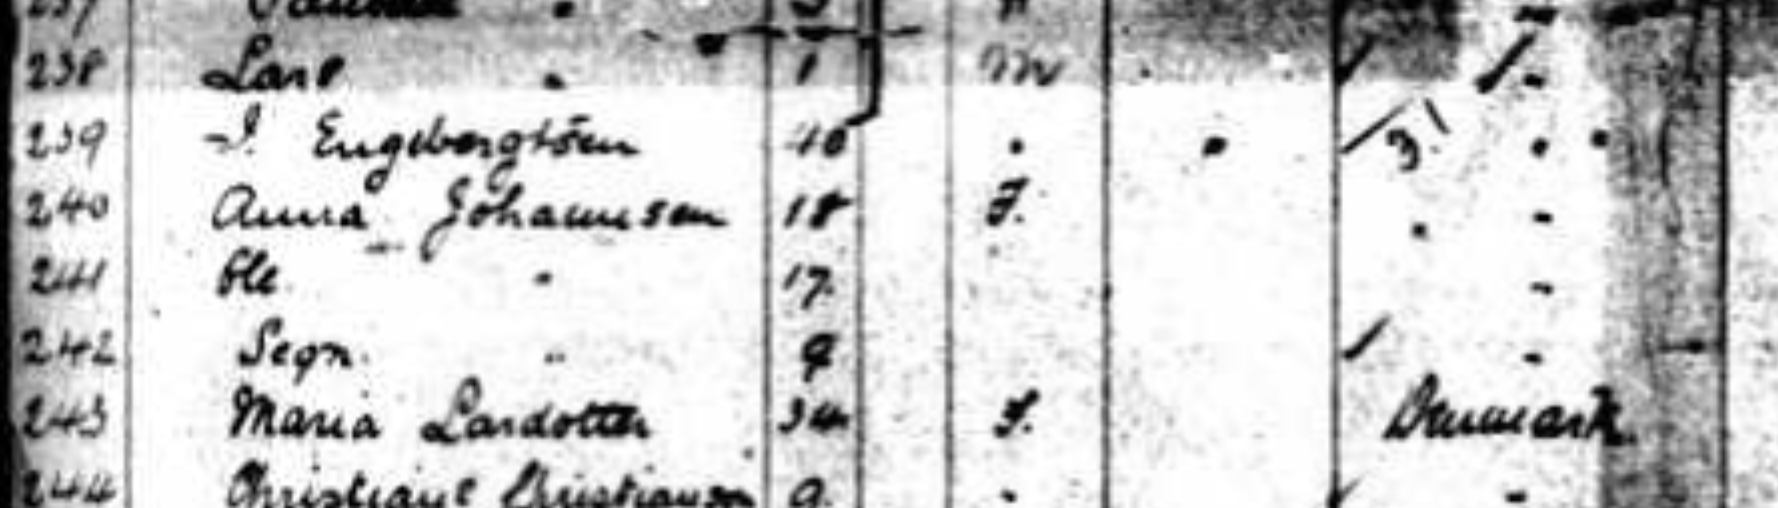 237 "
238 Lars " 1 m
239 J. Engebergtsen 40 " " 3! " "
240 Anna Johannsen 18 F. " "
241 Ole " 17 "
242 Segn. " 9 "
243 Maria Larsdotter 34 F. Denmark
244 Christiane Christianson 9 " "